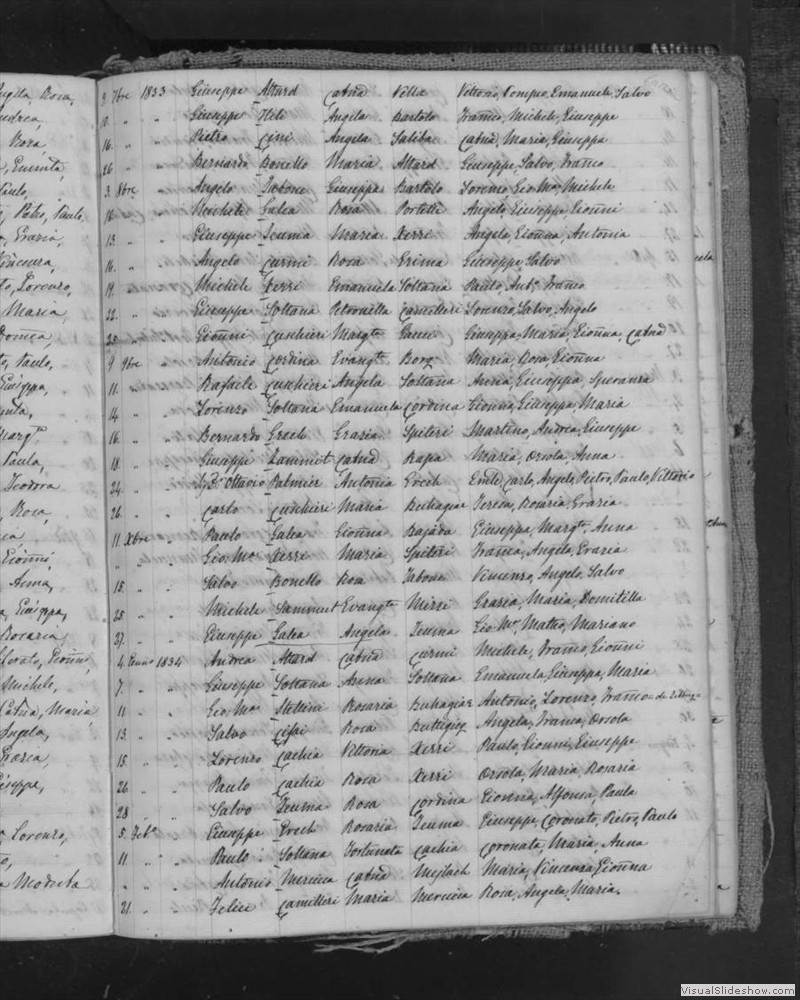 ngela, Rosa,
andrea,
Rosa,
, Eminta,
Paulo,
, Petro, Paulo,
, Grazia,
Vincenza,
to, Lorenzo,
Maria,
to, Paulo,
Giuseppa,
Marg.ta
Paula,
Teodora
, Rosa,
Gionni,
Anna,
a, Giuseppa,
Rosaria
Michele,
Catna, Maria
Angela,
Grazia,
Giuseppa,
, Lorenzo,
a Modesta
9 7bre 1833 Giuseppe Attard Catnd Vella Vittorio, Pompeo, Emanuele, Salvo
10. " " Giuseppe Angela Bartolo Franco, Michele, Giuseppe
16. " " Pietro Cini Angela Saliba Catnd, Maria, Giuseppa
26 " " Bernardo Bonello Maria Attard Giuseppe, Salvo, Franco
3. 8bre " Angelo Tabone Giuseppa Bartolo Lorenzo, Gio. Ma, Michele
" " Michele Galea Rosa Portelli Angelo, Giuseppa, Gionni
13. " " Giuseppe Teuma Maria Xerri Angela, Gionna, Antonia
16. " " Angelo Curmi Rosa Erima Giuseppa, Salvo
19. " " Michele Xerri Emanuela Soltana Paulo, Anto, Franco
22. " " Giuseppe Soltana Petronilla Camilleri Lorenzo, Salvo, Angelo
25. " " Gionni Cuschieri Margta Gauci Giuseppa, Maria, Gionna, Catnd
9 9bre " Antonio Cordina Evangta Borg Maria, Rosa, Gionna
11. " " Rafaele Cuschieri Angela Soltana Anna, Giuseppa, Speranza
14. " " Lorenzo Soltana Emanuela Cordina Gionna, Giuseppa, Maria
16. " " Bernardo Grech Grazia Spiteri Martino, Andrea, Giuseppe
18. " " Giuseppe Zammit Catnd Rapa Maria, Orsola, Anna
24. " " Ottavio Palmier Antonia Grech Carlo, Angelo, Pietro, Paulo, Vittorio
26. " " Carlo Cuschieri Maria Buhagiar Teresa, Rosaria, Grazia
11 Xbre " Paulo Galea Gionna Bajada Giuseppa, Margta, Anna
" " " Gio: Ma Xerri Maria Spiteri Franca, Angela, Grazia
15. " " Salvo Bonello Rosa Tabone Vincenzo, Angelo, Salvo
25. " " Michele Sammut Evangta Mizzi Grazia, Maria, Domitilla
27. " " Giuseppe Galea Angela Teuma Gio: Ma, Matteo, Mariano
4. Genno 1834 Andrea Attard Catnd Curmi Michele, Franco, Gionni
7. " " Giuseppe Soltana Anna Soltana Emanuela, Giuseppa, Maria
11 " " Gio: Ma Stellini Rosaria Buhagiar Antonio, Lorenzo, Franco
13 " " Salvo Rosa Buttigieg Angela, Franca, Orsola
15. " " Lorenzo Cachia Vittoria Xerri Paulo, Gionni, Giuseppe
26. " " Paulo Cachia Rosa Xerri Orsola, Maria, Rosaria
28 " " Salvo Teuma Rosa Cordina Gionna, Alfonsa, Paula
5. Febo " Giuseppe Grech Rosaria Teuma Giuseppe, Coronato, Pietro, Paulo
11 " " Paulo Soltana Fortunata Cachia Coronata, Maria, Anna
" " " Antonio Mercieca Catnd Mejlach Maria, Vincenza, Gionna
21. " " Felice Camilleri Maria Mercieca Rosa, Angela, Maria.
VisualSlideshow.com